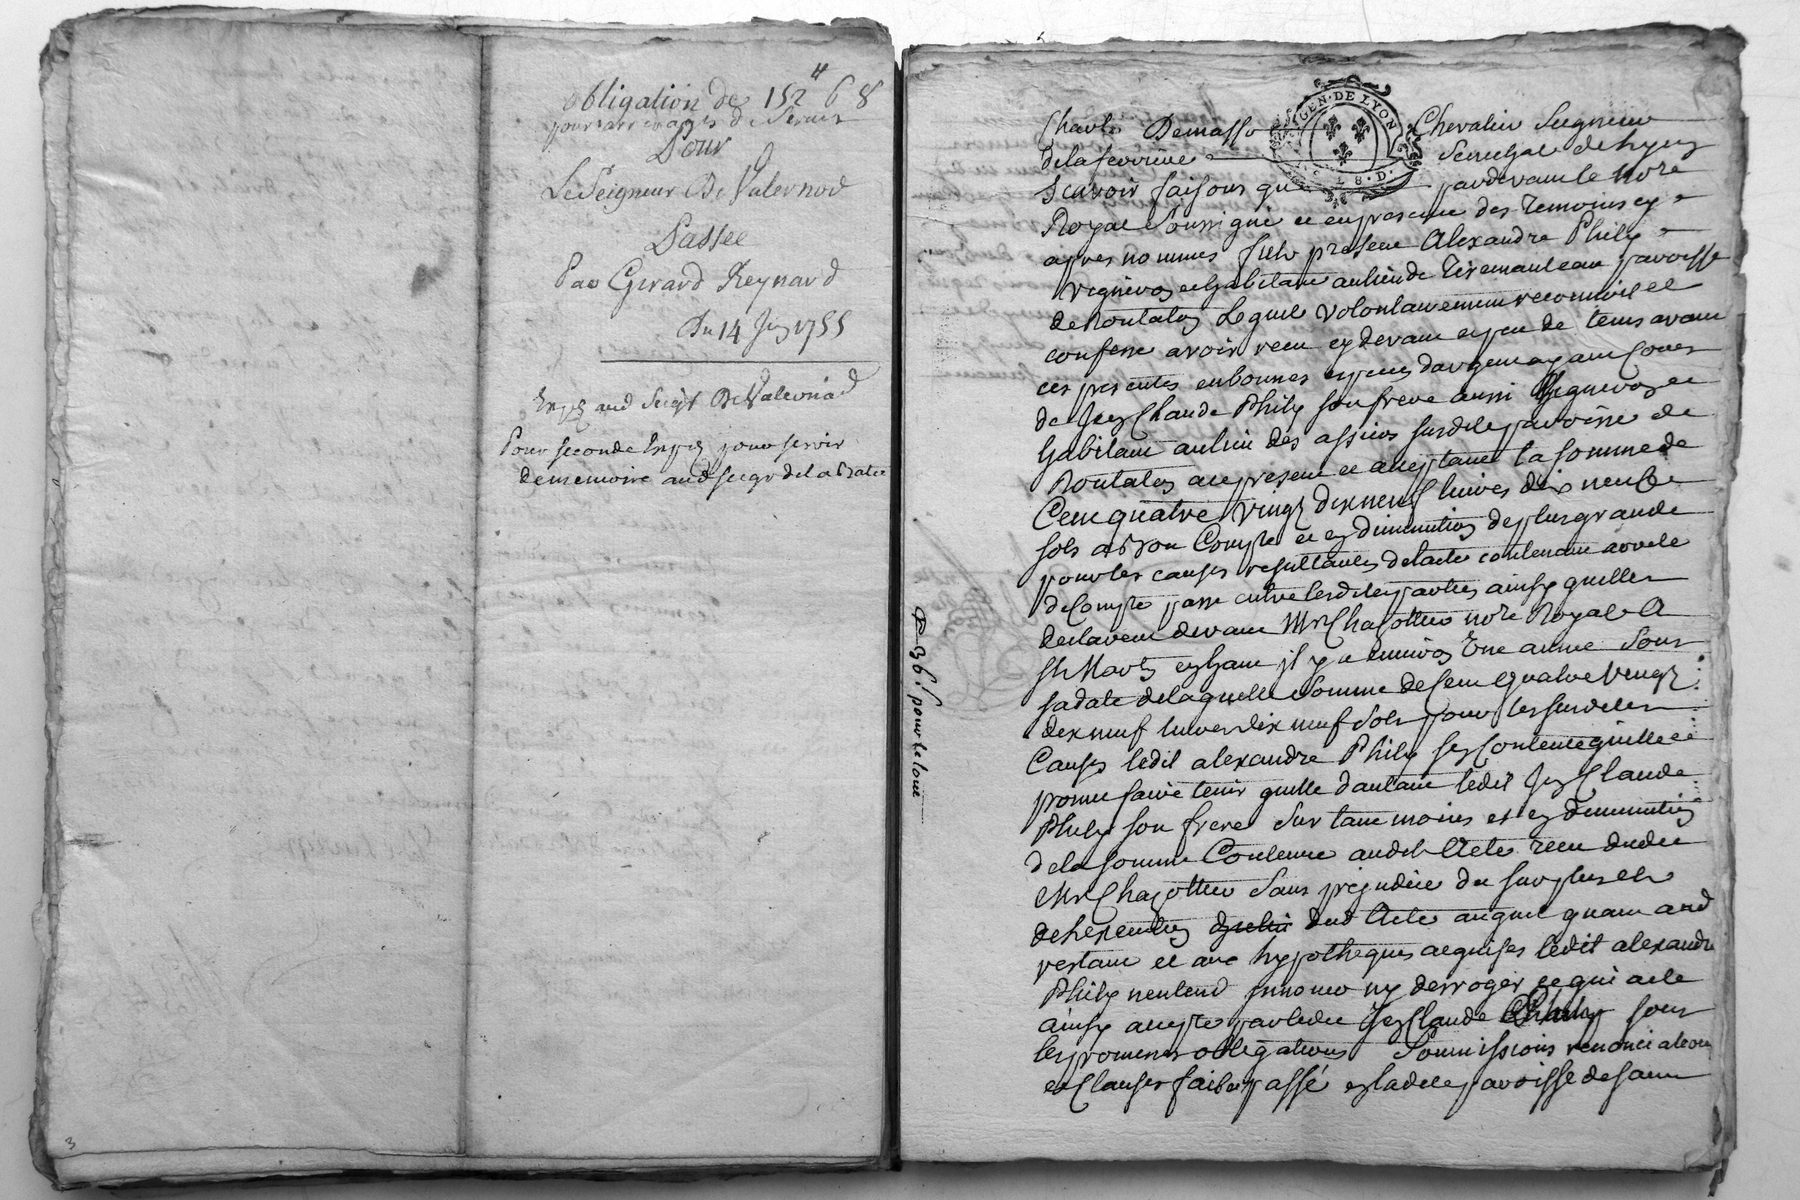 obligation de 152 ᵗᵗ 6 8
pour arrerages de Servis
Pour
Le Seigneur De Valernod
Passee
Par Gerard Reynard
Du 14 Juin 1755
aud Seigr De Valernod
Pour seconde pour servir
de memoire aud seigr de la
pour le loue
GEN. DE LYON
Charles Demasso Chevalier Seigneur
delaferriere Senechal de Lyon
scavoir faisons que pardevant le nore
Royal soussigné et en presence des temoins cy
apres nommes fut present Alexandre Phily
vigneron habitant au lieu de Tiremanteau paroisse
de Rontalon lequel volontairement reconnoit et
confesse avoir receu cy devant et peu de tems avant
ces presentes en bonnes especes dargent ayant cours
de Jean Claude Phily son frere aussi vigneron et
habitant au lieu des assises susdite paroisse de
Rontalon cy present et acceptant la somme de
Cent quatre vingt dix neuf livres dix neuf
sols a bon Compte et en diminution de plus grande
pour les causes resultantes de lacte contenant arrete
de Compte passé entre lesdites parties ainsy quelles
declarent devant Mre Chazottier nore Royal A
St Martin il y a environ Une année sous
sa date de laquelle somme de Cent Quatre vingt
dix neuf livres dix neuf sols pour les susdites
Causes ledit alexandre Phily sen Contente quitte et
promet faire tenir quitte dautant ledit Jean Claude
Phily son frere sur tant moins et en diminution
de la somme Contenue audit Acte receu dudit
Mre Chazottier sans prejudice du surplus et
de lexecution dud Acte auquel quant aud
restant et aux hypotheques acquises ledit alexandre
Phily nentend innover ny derroger ce qui a ete
ainsy accepte par ledit Jean Claude Phily sous
les promesses obligations soumissions renonciations
et Clauses fait et passé en ladite paroisse de saint